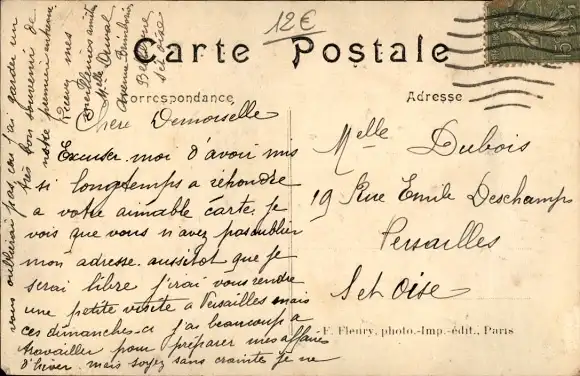 12€
Carte Postale
Correspondance
Adresse
Chère Demoiselle
Excuser moi d'avoir mis
si longtemps a réhondre
a votre aimable carte. Je
vois que vous n'avez pas oublier
mon adresse. aussitot que je
serai libre j'irai vous rendre
une petite visite a Versailles mais
ces dimanches-ci j'ai beaucoup a
travailler pour préparer mes affaires
d'hiver. mais soyez sans crainte je ne
vous oublierai pas, car j'ai garder un
très bon souvenir de
notre première
Recevez mes
meilleures amitiés
Melle Duval
Avenue
Set Oise
Melle Dubois
19 Rue Emile Deschamps
Versailles
Set Oise
- F. Fleury, photo.-Imp.-édit., Paris